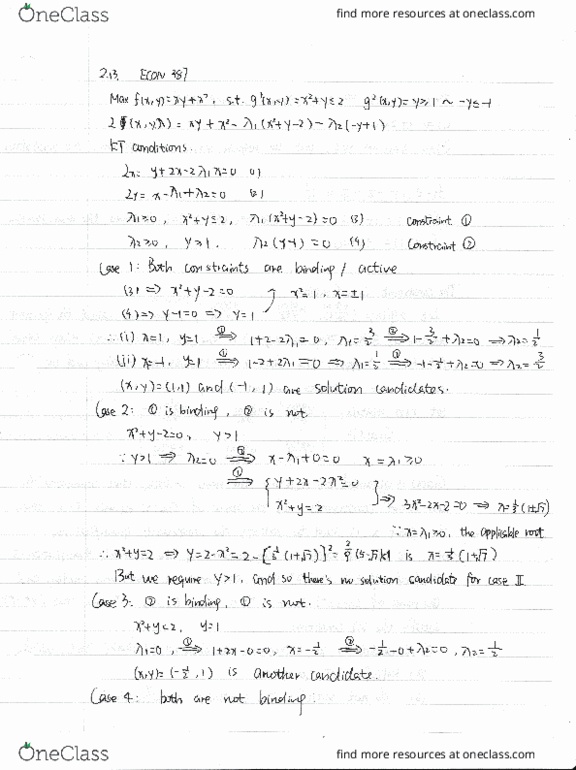 OneClass
find more resources at oneclass.com
2.13. ECON 387
Max f(x,y)=xy+x², s.t. g¹(x,y)=x²+y≤2 g²(x,y)=y≥1 ~ -y≤-1
(x,y,λ) = xy+x²-λ1(x²+y-2)-λ2(-y+1)
KT conditions.
Lx= y+2x-2λ1x=0 (1)
Ly= x-λ1+λ2=0 (2)
λ1≥0, x²+y≤2, λ1(x²+y-2)=0 (3) constraint ①
λ2≥0, y≥1. λ2(y-1)=0 (4) constraint ②
Case 1: Both constraints are binding / active
(3) => x²+y-2=0 x²=1, x=±1
(4) => y-1=0 => y=1
∴(i) x=1, y=1 ①=> 1+2-2λ1=0, λ1=3/2 ②=> 1-3/2+λ2=0 => λ2=1/2
(ii) x=-1, y=1 ①=> 1-2+2λ1=0 => λ1=1/2 => -1-1/2+λ2=0 => λ2=3/2
(x,y)=(1,1) and (-1,1) are solution candidates.
Case 2: ① is binding, ② is not.
x²+y-2=0, y>1
∵ y>1 => λ2=0 ②=> x-λ1+0=0 x=λ1≥0
①=> { y+2x-2x²=0
x²+y=2 } => 3x²-2x-2=0 => x=1/3(1+√7)
∵ x=λ1≥0, the applicable root
∴ x²+y=2 => y=2-x²=2-[1/3(1+√7)]²=2/9(5-√7)<1 is x=1/3(1+√7)
But we require y>1, and so there's no solution candidate for case II
Case 3: ② is binding, ① is not.
x²+y<2, y=1
λ1=0, ①=> 1+2x-0=0, x=-1/2 ②=> -1/2-0+λ2=0, λ2=1/2
(x,y)=(-1/2,1) is another candidate.
Case 4: both are not binding
OneClass
find more resources at oneclass.com